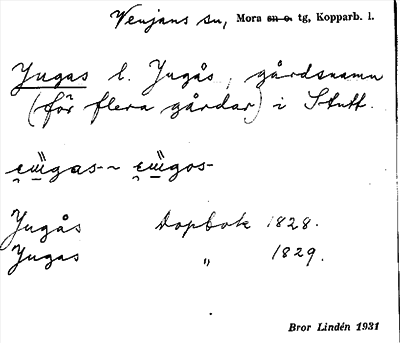 Venjans sn, Mora sn o. tg, Kopparb. l.
Jugas l. Jugås, gårdsnamn
(för flera gårdar) i Stutt.
Jugås Dopbok 1828.
Jugas " 1829.
Bror Lindén 1931